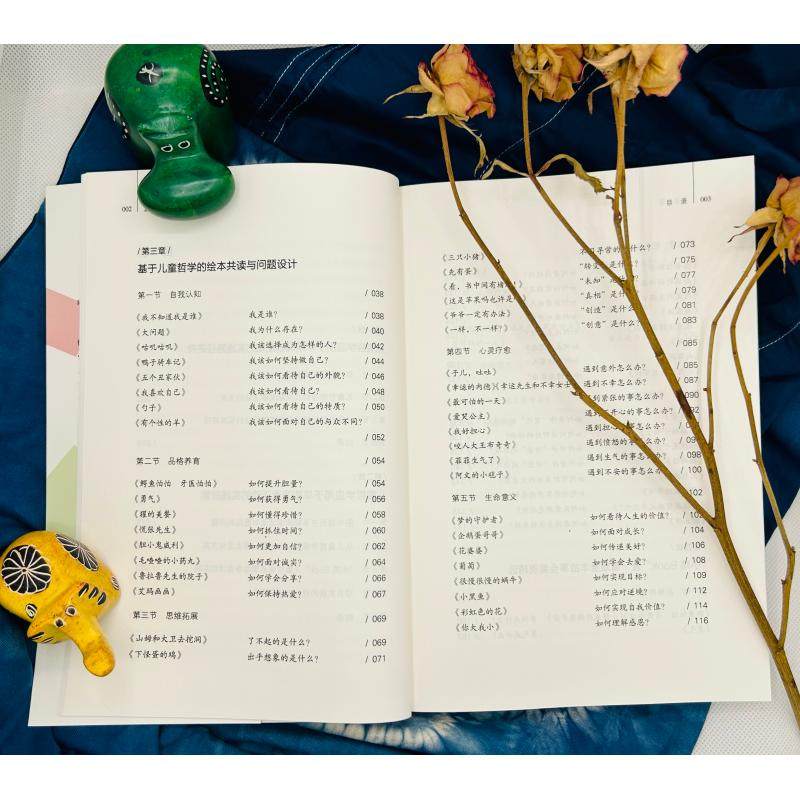 002
/第三章/
基于儿童哲学的绘本共读与问题设计
第一节 自我认知 / 038
《我不知道我是谁》 我是谁? / 038
《大问题》 我为什么存在? / 040
《咕叽咕叽》 我该选择成为怎样的人? / 042
《鸭子骑车记》 我该如何坚持做自己? / 044
《五个丑家伙》 我该如何看待自己的外貌? / 046
《我喜欢自己》 我该如何看待自己? / 048
《勺子》 我该如何看待自己的特质? / 050
《有个性的羊》 我该如何面对自己的与众不同?
/ 052
第二节 品格养育 / 054
《鳄鱼怕怕 牙医怕怕》 如何提升胆量? / 054
《勇气》 如何获得勇气? / 056
《獾的美餐》 如何懂得珍惜? / 058
《慌张先生》 如何抓住时间? / 060
《胆小鬼威利》 如何更加自信? / 062
《毛嗑嗑的小药丸》 如何面对诚实? / 064
《鲁拉鲁先生的院子》 如何学会分享? / 066
《艾玛画画》 如何保持热爱? / 067
第三节 思维拓展 / 069
《山姆和大卫去挖洞》 了不起的是什么? / 069
《下怪蛋的鸡》 出乎想象的是什么? / 071
目录 003
《三只小猪》 不同寻常的 什么? / 073
《先有蛋》 “转变” 是什么? / 075
《看,书中间有堵墙!》 “未知” 是什么? / 077
《这是苹果吗也许是 “真相” 是什么? / 079
《爷爷一定有办法》 “创造” 是什么? / 081
《一样,不一样?》 “创意” 是什么? / 083
第四节 心灵疗愈 / 085
《子儿,吐吐》 遇到意外怎么办? / 085
《幸运的内德》《幸运先生和不幸女士 遇到不幸怎么办? / 087
《最可怕的一天》 遇到紧张的事怎么办? 090
《爱哭公主》 遇到 开心的事怎么办? / 092
《我好担心》 遇到担心 事怎么办? / 094
《咬人大王布奇奇》 遇到愤怒的事怎么办?
《菲菲生气了》 遇到生气的事怎么办?
《阿文的小毯子》 遇到不安的事怎么办? / 100
第五节 生命意义 102
《梦的守护者》 如何看待人生的价值? / 102
《企鹅蛋哥哥》 如何面对成长? / 104
《花婆婆》 如何传递美好? / 106
《葡萄》 如何学会去爱? / 108
《很慢很慢的蜗牛》 如何实现目标? / 109
《小黑鱼》 如何应对逆境? / 112
《彩虹色的花》 如何实现自我价值? / 114
《你大我小》 如何理解感恩? / 116